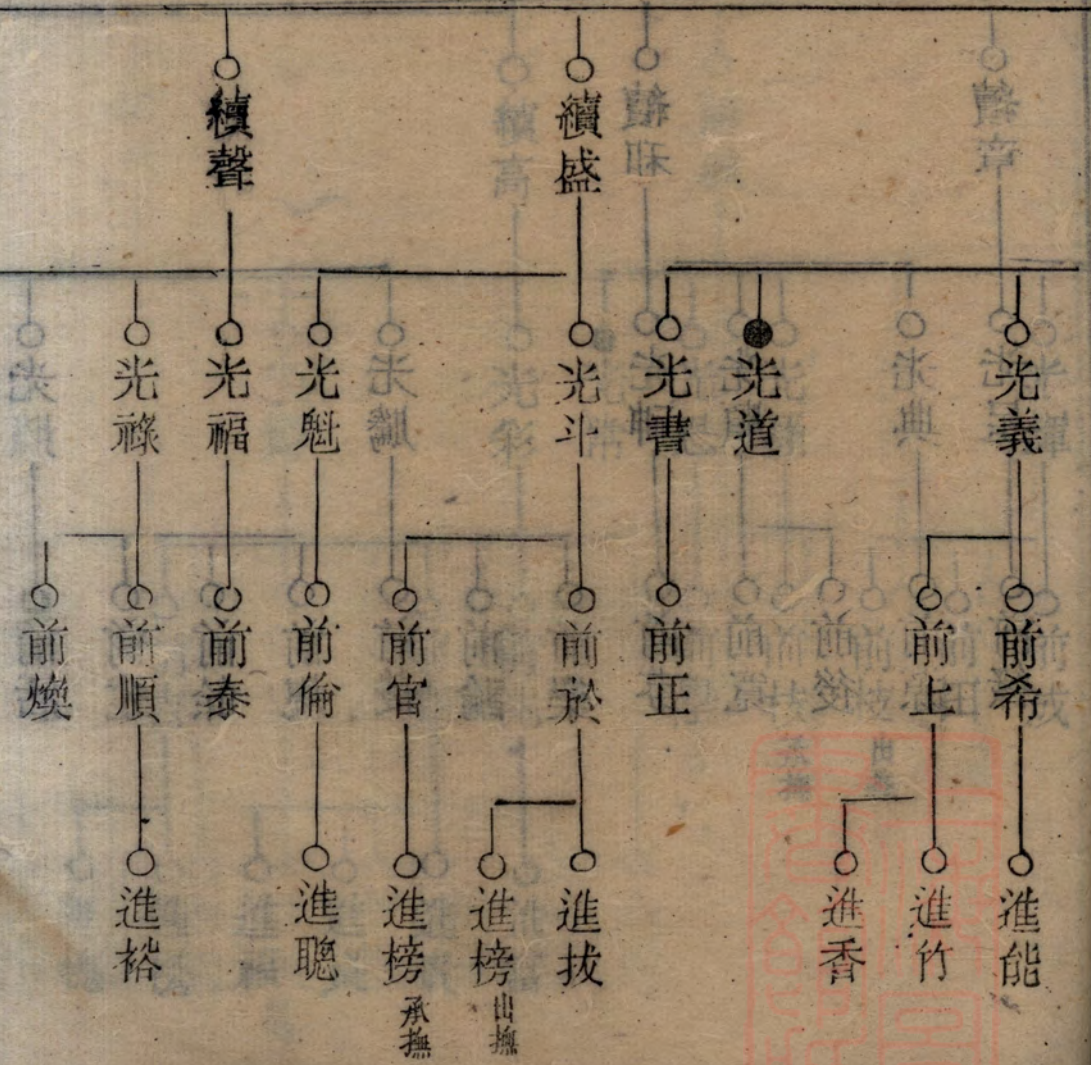 續盛
續聲
光義
光道
光書
光斗
光魁
光福
光祿
前希
前上
前正
前於
前官
前倫
前泰
前順
前煥
進能
進竹
進香
進拔
進榜 出撫
進榜 承撫
進聰
進裕